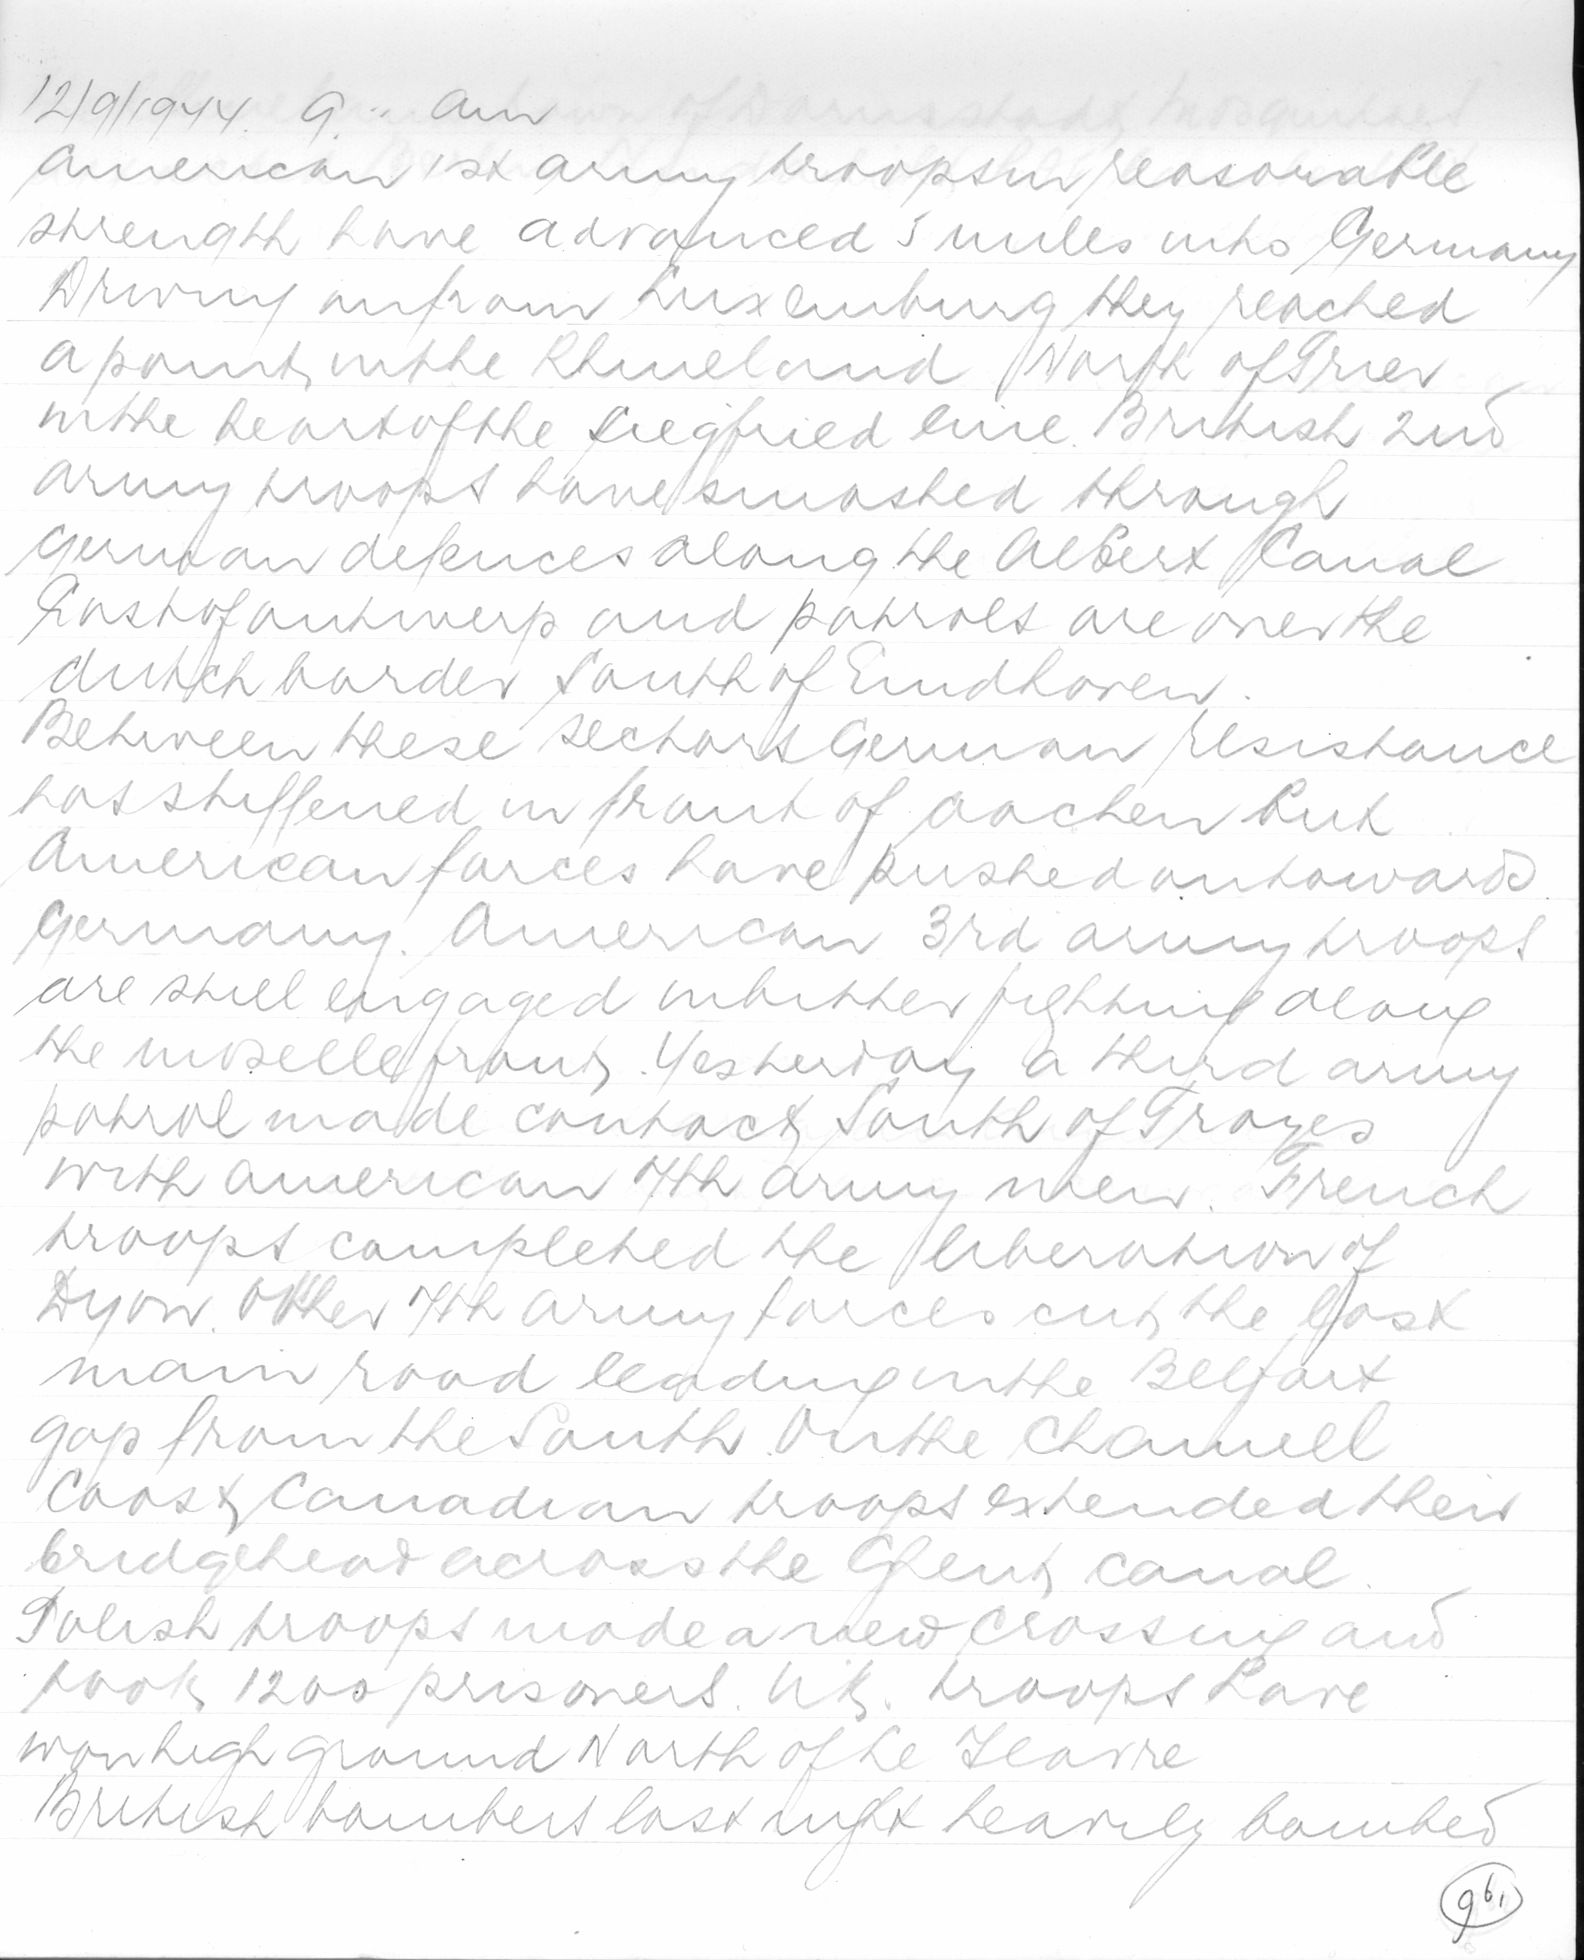 12/9/1944. 9.. am
American 1st army troops in reasonable
strength have advanced 5 miles into Germany
Driving on from Luxemburg they reached
a point in the Rhineland North of Trier
in the heart of the Siegfried line. British 2nd
army troops have smashed through
German defences along the Albert Canal
East of antwerp and patrols are over the
dutch border South of Eindhoven.
Between these sectors German resistance
has stiffened in front of aachen but
American forces have pushed on towards
Germany. American 3rd army troops
are still engaged in bitter fighting along
the moselle front. Yesterday a third army
patrol made contact South of Troyes
with american 7th army men. French
troops completed the liberation of
Dyon. Other 7th army forces cut the last
main road leading in the Belfort
gap from the South. On the Channell
Coast Canadian troops extended their
bridgehead across the Ghent canal.
Polish troops made a new crossing and
took 1200 prisoners. U.K. troops have
won high ground North of Le Havre
British bombers last night heavily bombed
96,